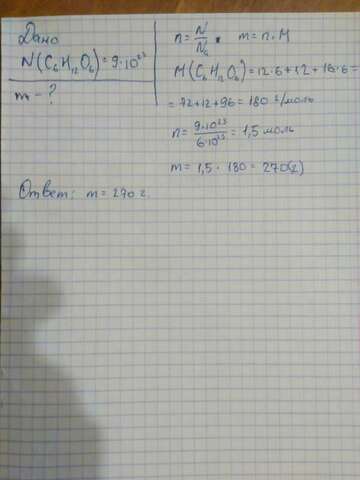 Дано
N(C₆H₁₂O₆)=9·10²³
m - ?
n=N/Nₐ m=n·M
M(C₆H₁₂O₆)=12·6+12+16·6=
=72+12+96=180 г/моль
n=9·10²³/6·10²³=1,5 моль
m=1,5·180=270(г)
Ответ: m=270 г.